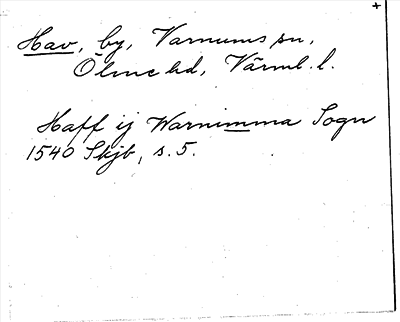 +
Hav, by, Varnums sn,
Ölme hd, Värml. l.
Haff ij Warnimma Sogn
1540 Skjb, s. 5.